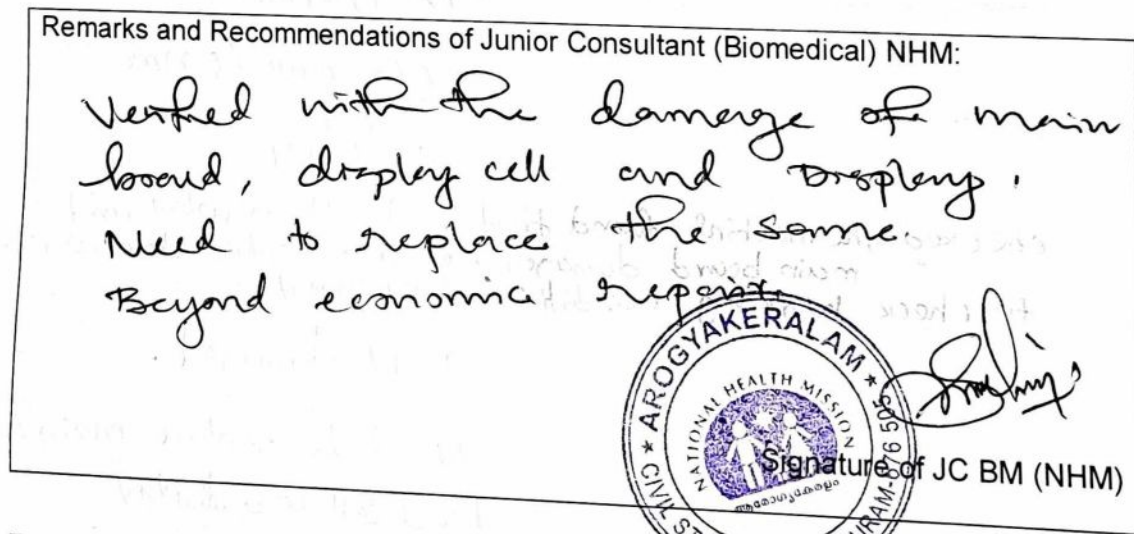 Remarks and Recommendations of Junior Consultant (Biomedical) NHM:
Verified with the damage of main
board, display cell and Display.
Need to replace the same.
Beyond economic repair.
★ AROGYAKERALAM ★
NATIONAL HEALTH MISSION
ആരോഗ്യകേരളം
CIVIL ST
URAM-676 505
Signature of JC BM (NHM)